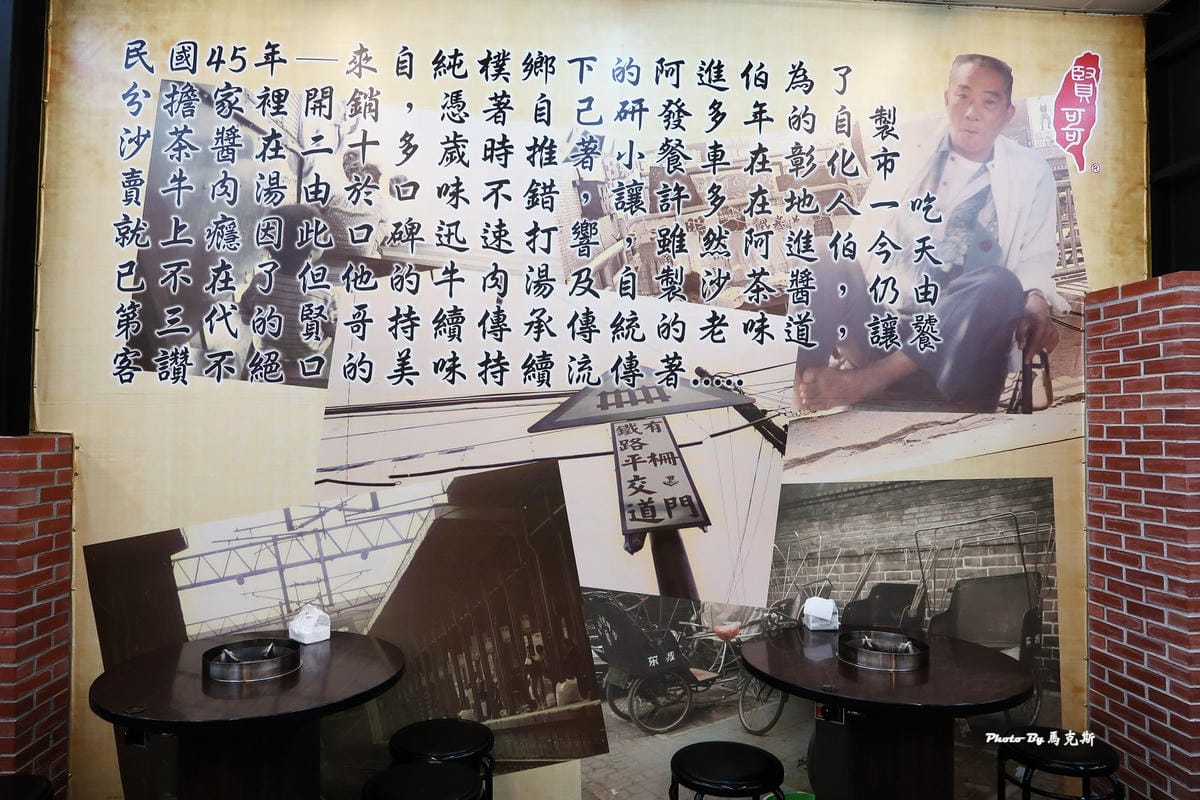 民國45年—來自純樸鄉下的阿進伯為了
分擔家裡開銷，憑著自己研發多年的自製
沙茶醬在二十多歲時推著小餐車在彰化市
賣牛肉湯由於口味不錯，讓許多在地人一吃
就上癮因此口碑迅速打響，雖然阿進伯今天
已不在了但他的牛肉湯及自製沙茶醬，仍由
第三代的賢哥持續傳承傳統的老味道，讓饕
客讚不絕口的美味持續流傳著.....
賢哥®
有柵門
鐵路平交道
Photo By 馬克斯